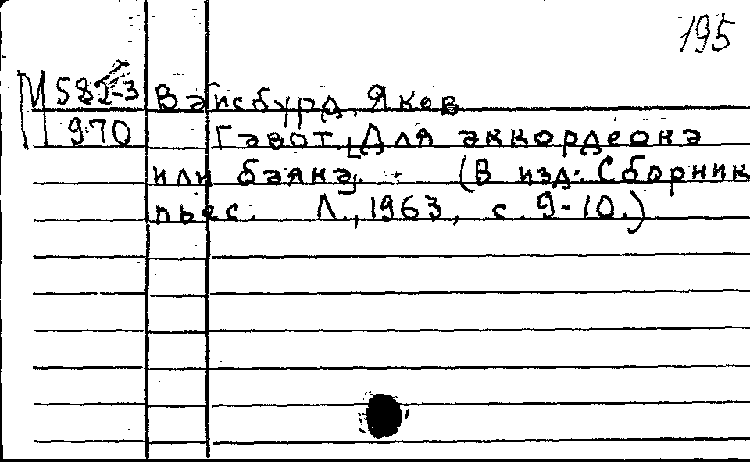 195
М 582-3 Вайсбурд, Яков
970 Гавот. [Для аккордеона
или баяна]. - (В изд.: Сборник
пьес. Л., 1963, с. 9-10.)